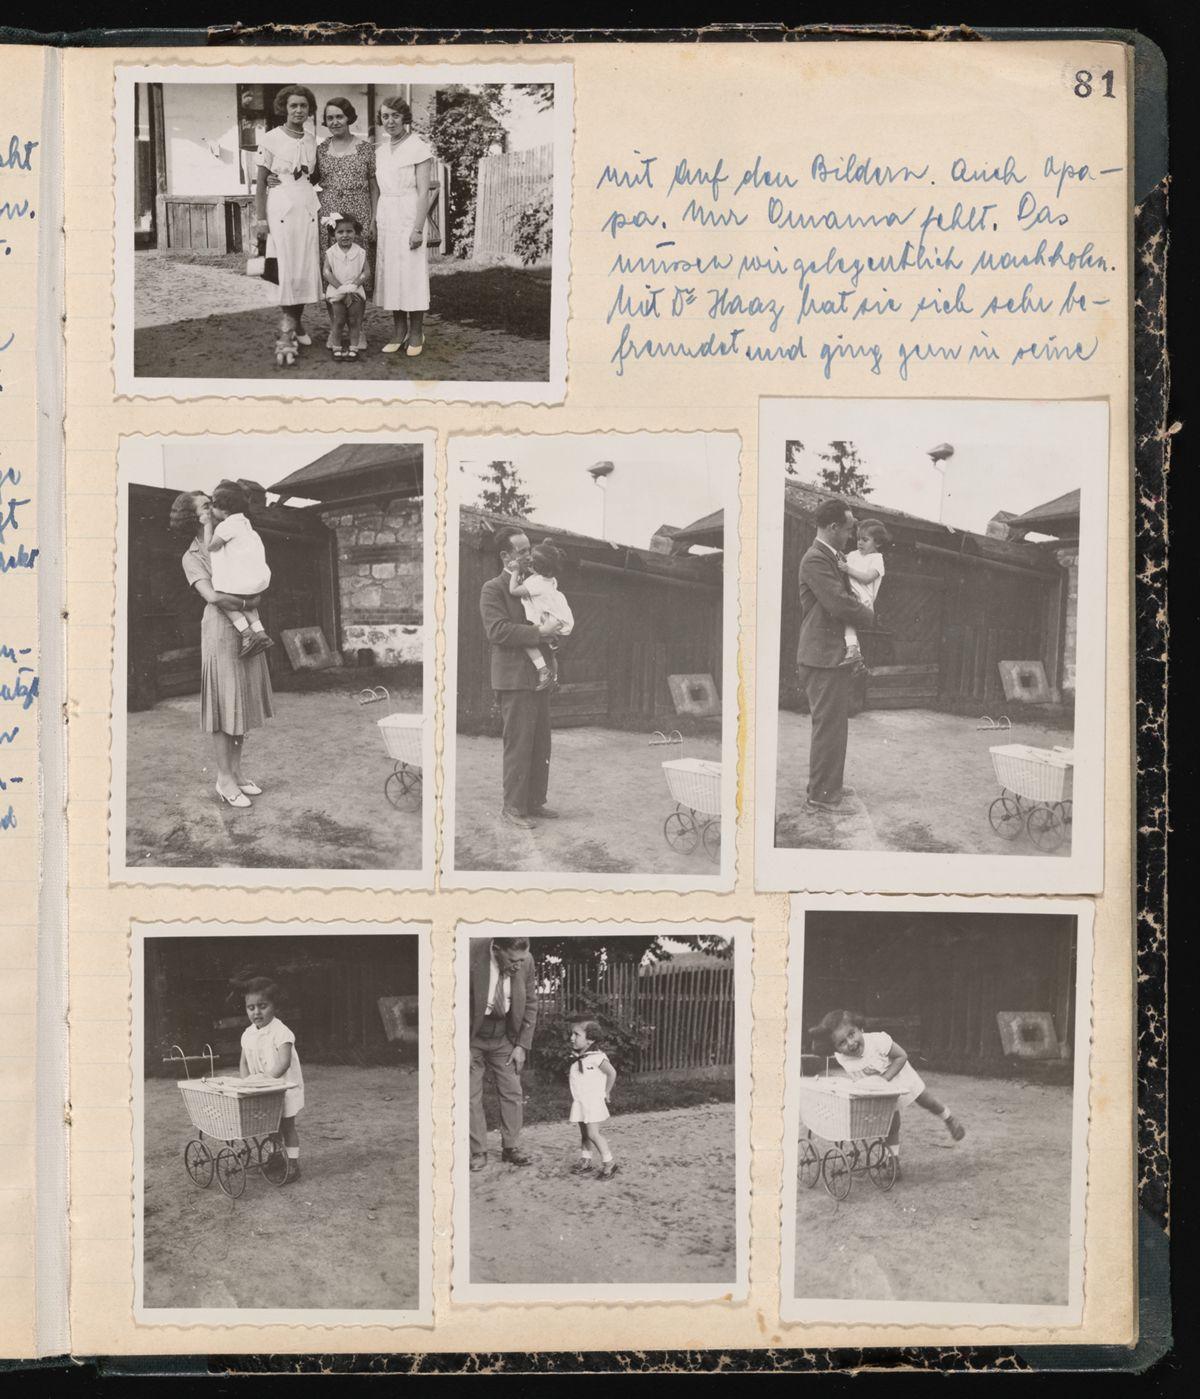 81
mit auf den Bildern. Auch Opa-
pa. Nur Omama fehlt. Das
müssen wir gelegentlich nachholen.
Mit Dr Haaz hat sie sich sehr be-
freundet und ging gern in seine